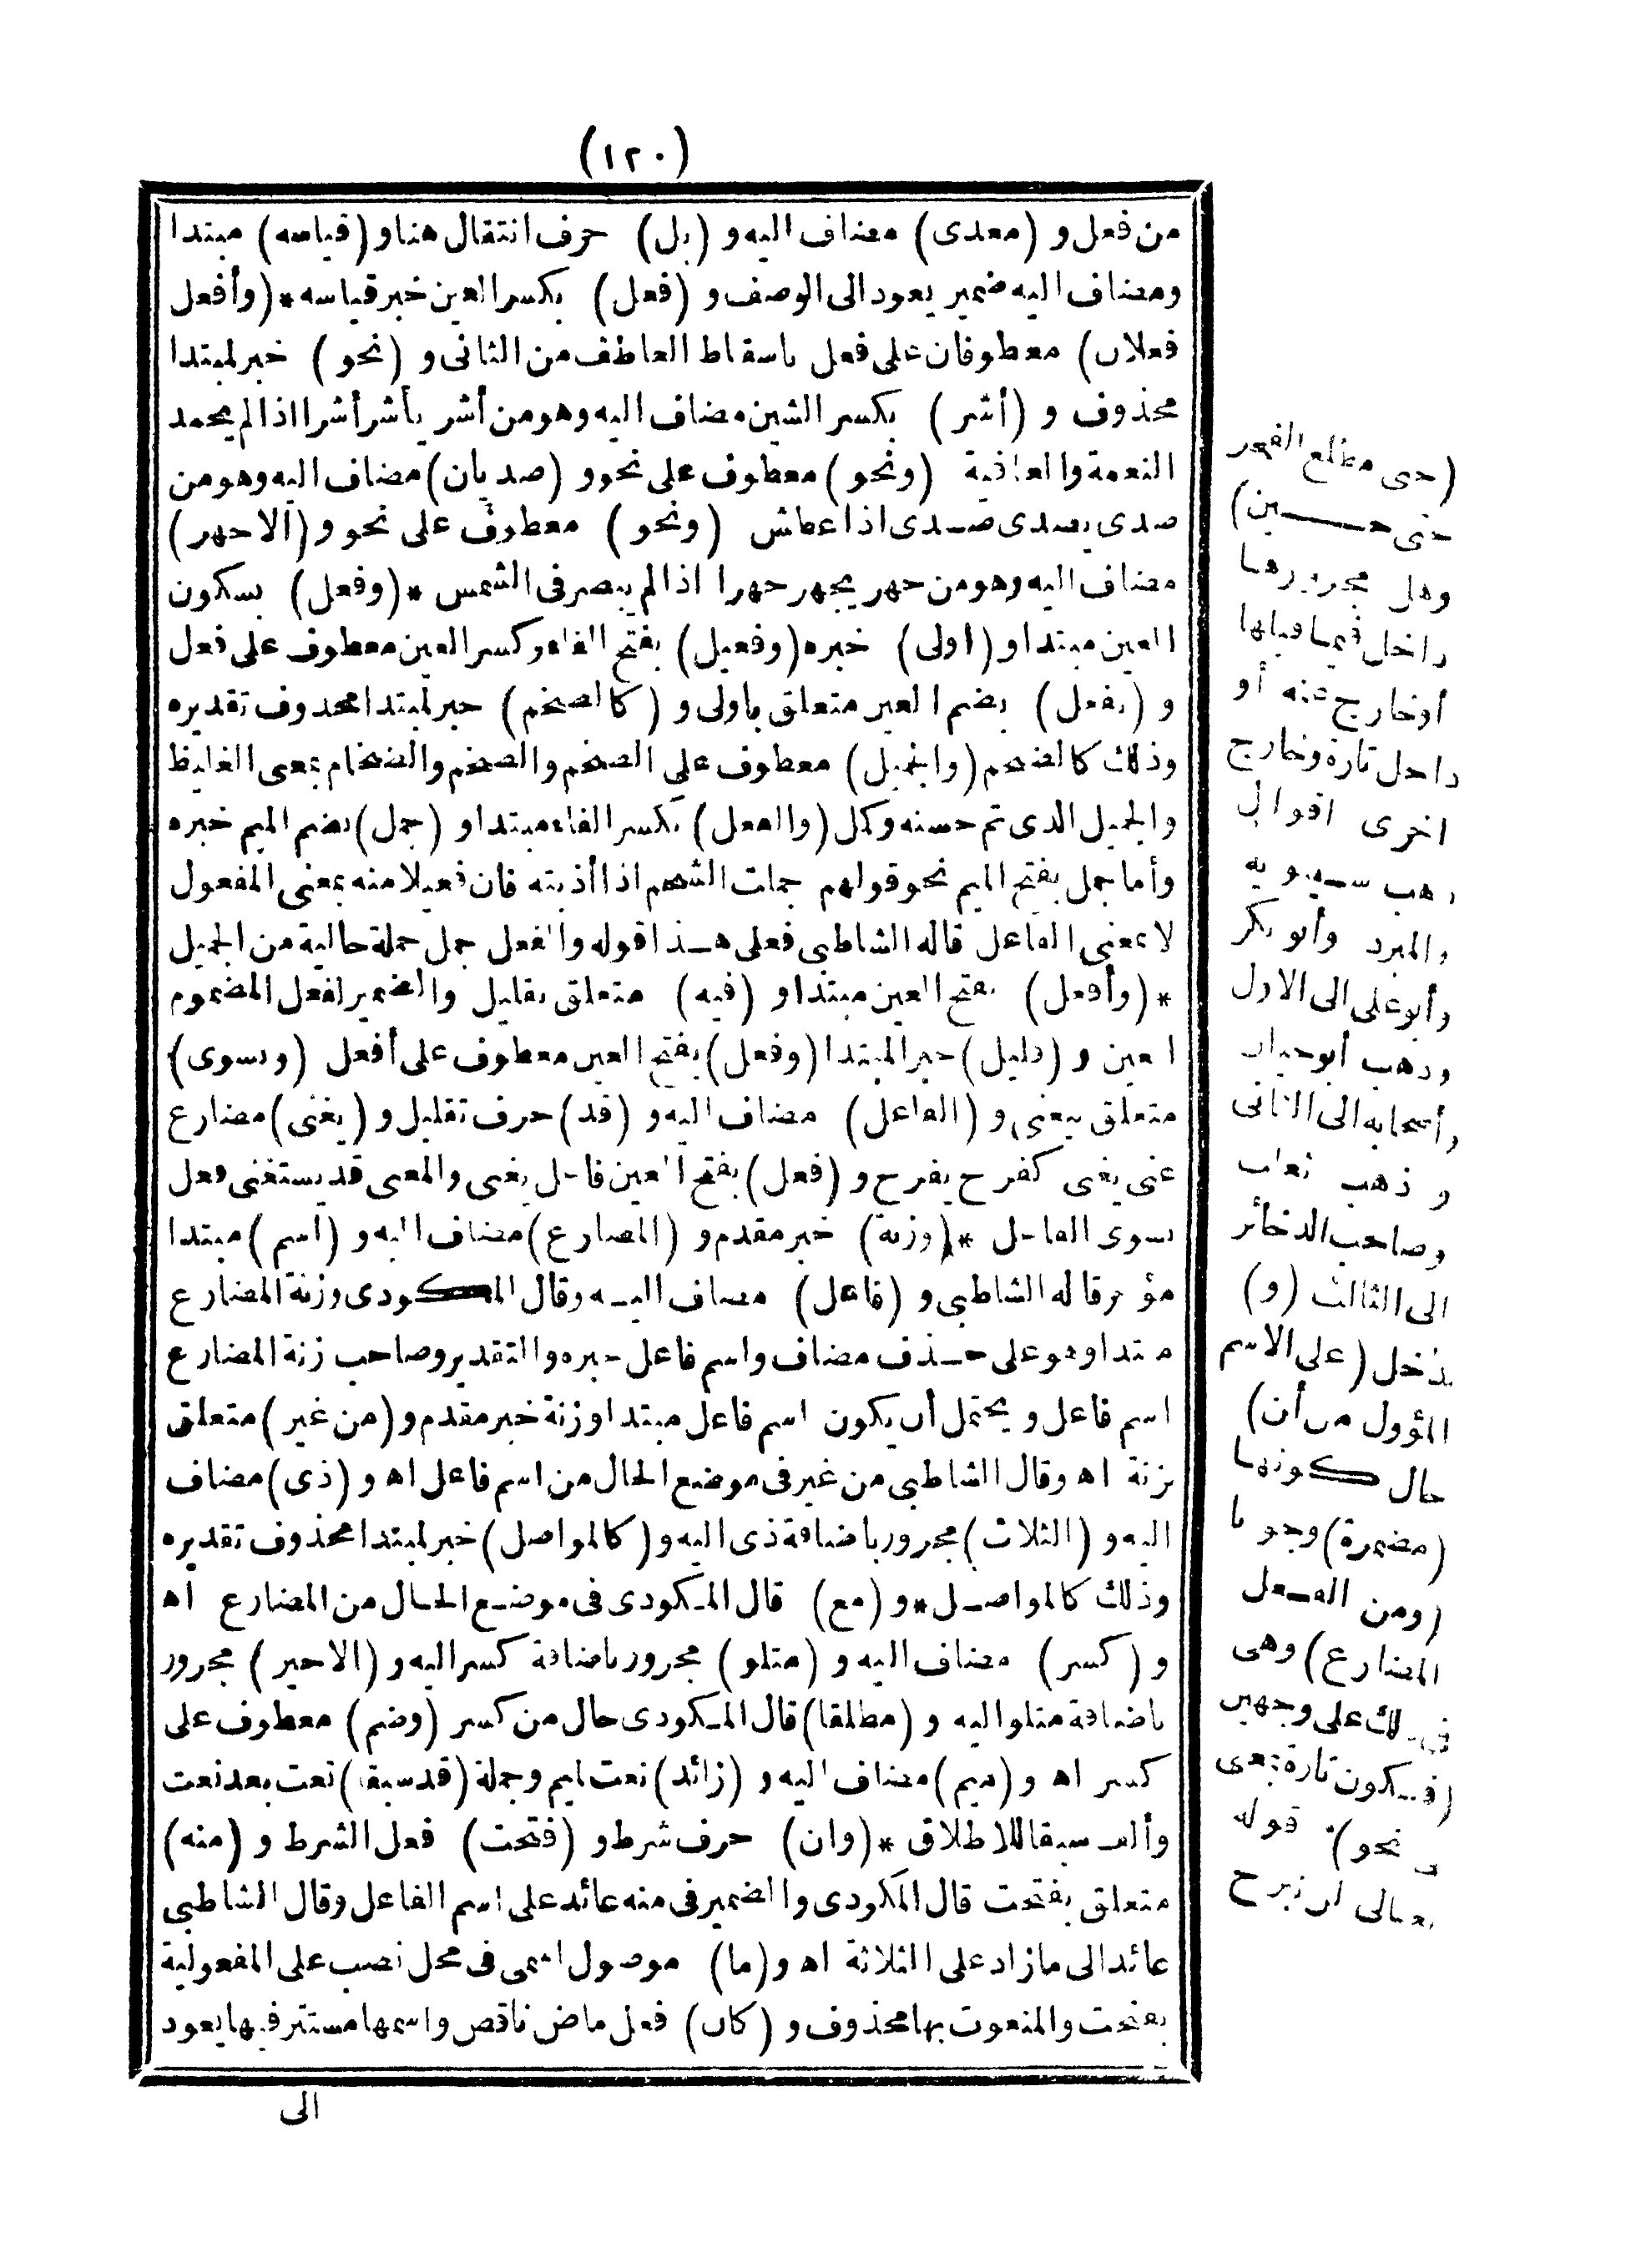 (١٢٠)
من فعل و (معدى) مضاف اليه و (بل) حرف انتقال هنا و (قياسه) مبتدا
ومضاف اليه ضمير يعود الى الوصف و (فعل) بكسر العين خبر قياسه * (وأفعل
فعلان) معطوفان على فعل باسقاط العاطف من الثانى و (نحو) خبر لمبتدا
محذوف و (أشر) بكسر الشين مضاف اليه وهو من أشر يأشر أشرا اذا لم يحمد
النعمة والعافية (ونحو) معطوف على نحو و (صديان) مضاف اليه وهو من
صدى يصدى صدى اذا عطش (ونحو) معطوف على نحو و (الاجهر)
مضاف اليه وهو من جهر يجهر جهرا اذا لم يبصر فى الشمس * (وفعل) بسكون
العين مبتدا و (أولى) خبره (وفعيل) بفتح الفاء وكسر العين معطوف على فعل
و (بفعل) بضم العين متعلق باولى و (كالضخم) خبر لمبتدا محذوف تقديره
وذلك كالضخم (والجميل) معطوف على الضخم والضخم والضخام بمعنى الغليظ
والجميل الذى تم حسنه وكمل (والفعل) بكسر الفاء مبتدا و (جمل) بضم الميم خبره
وأما جمل بفتح الميم نحو قولهم جملت الشحم اذا أذبته فان فعيلا منه بمعنى المفعول
لا بمعنى الفاعل قاله الشاطبى فعلى هذا قوله والفعل جمل جملة حالية من الجميل
* (وأفعل) بفتح العين مبتدا و (فيه) متعلق بقليل والضمير لفعل المضموم
العين و (قليل) خبر المبتدا (وفعل) بفتح العين معطوف على أفعل (وبسوى)
متعلق بيغنى و (الفاعل) مضاف اليه و (قد) حرف تقليل و (يغنى) مضارع
غنى يغنى كفرح يفرح و (فعل) بفتح العين فاعل يغنى والمعنى قد يستغنى فعل
بسوى الفاعل * (وزنة) خبر مقدم و (المضارع) مضاف اليه و (اسم) مبتدا
مؤخر قاله الشاطبى و (فاعل) مضاف اليه وقال المكودى وزنة المضارع
مبتدا وهو على حذف مضاف واسم فاعل خبره والتقدير وصاحب زنة المضارع
اسم فاعل و يحتمل أن يكون اسم فاعل مبتدا وزنة خبر مقدم و (من غير) متعلق
بزنة اه وقال الشاطبى من غير فى موضع الحال من اسم فاعل اه و (ذى) مضاف
اليه و (الثلاث) مجرور باضافة ذى اليه و (كالمواصل) خبر لمبتدا محذوف تقديره
وذلك كالمواصل * و (مع) قال المكودى فى موضع الحال من المضارع اه
و (كسر) مضاف اليه و (متلو) مجرور باضافة كسر اليه و (الاخير) مجرور
باضافة متلو اليه و (مطلقا) قال المكودى حال من كسر (وضم) معطوف على
كسر اه و (ميم) مضاف اليه و (زائد) نعت لميم وجملة (قد سبقا) نعت بعد نعت
وألف سبقا للاطلاق * (وان) حرف شرط و (فتحت) فعل الشرط و (منه)
متعلق بفتحت قال المكودى والضمير فى منه عائد على اسم الفاعل وقال الشاطبى
عائد الى ما زاد على الثلاثة اه و (ما) موصول اسمى فى محل نصب على المفعولية
بفتحت والمنعوت بها محذوف و (كان) فعل ماض ناقص واسمها مستتر فيها يعود
الى
(حتى مطلع الفجر
حتى حين)
وهل مجرورها
داخل فيما قبلها
أو خارج عنه أو
داخل تارة وخارج
اخرى اقوال
ذهب سيبويه
والمبرد وأبو بكر
وأبو على الى الاول
وذهب أبو حيان
وأصحابه الى الثانى
وذهب ثعلب
وصاحب الذخائر
الى الثالث (و)
تدخل (على الاسم
المؤول من أن)
حال كونها
(مضمرة) وجوبا
(ومن الفعل
المضارع) وهى
فى ذلك على وجهين
(فتكون تارة بمعنى
نحو) قوله
تعالى لن نبرح